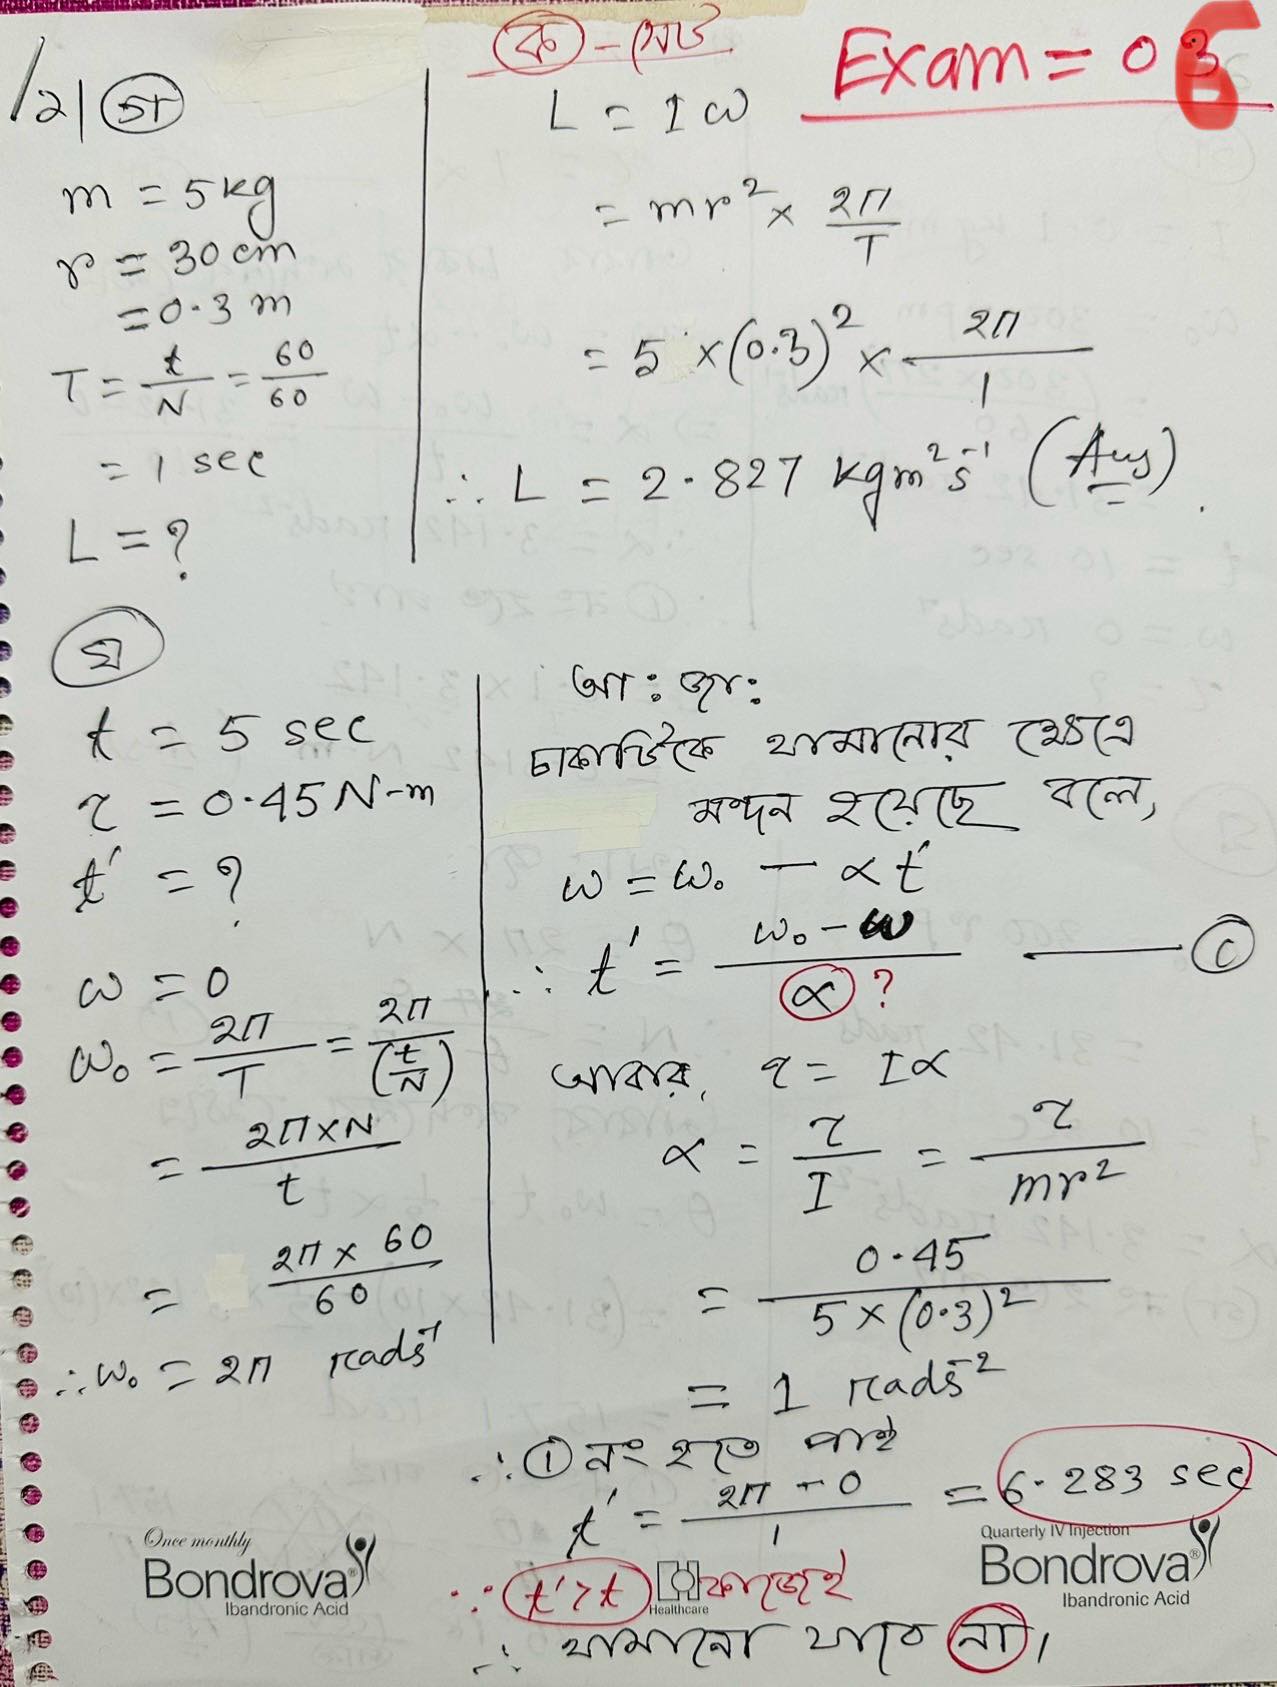 ক - সেট
Exam = 06
/2| গ
m = 5 kg
r = 30 cm
= 0.3 m
T = t/N = 60/60
= 1 sec
L = ?
L = Iω
= mr² × 2π/T
= 5 × (0.3)² × 2π/1
∴ L = 2.827 kgm²s⁻¹ (Ans)
ঘ
t = 5 sec
τ = 0.45 N-m
t' = ?
ω = 0
ω₀ = 2π/T = 2π/(t/N)
= 2π×N/t
= 2π × 60/60
∴ ω₀ = 2π rads⁻¹
আঃ জাঃ
চাকাটিকে থামানোর ক্ষেত্রে
মন্দন হয়েছে বলে,
ω = ω₀ − αt'
∴ t' = ω₀ − ω/α ? —— (i)
আবার, τ = Iα
α = τ/I = τ/mr²
= 0.45/5 × (0.3)²
= 1 rads⁻²
∴ (i) নং হতে পাই
t' = 2π − 0/1 = 6.283 sec
∵ t' > t কাজেই
∴ থামানো যাবে না।
Once monthly
Bondrova®
Ibandronic Acid
Healthcare
Quarterly IV Injection
Bondrova®
Ibandronic Acid